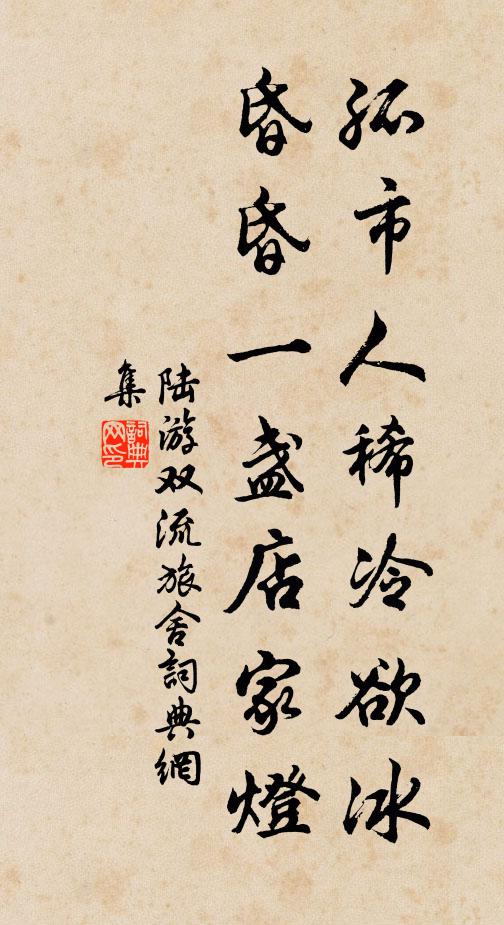 孤市人稀冷欲冰
昏昏一盏店家燈
陆游双流旅舍詞典網
集
詞典
网印